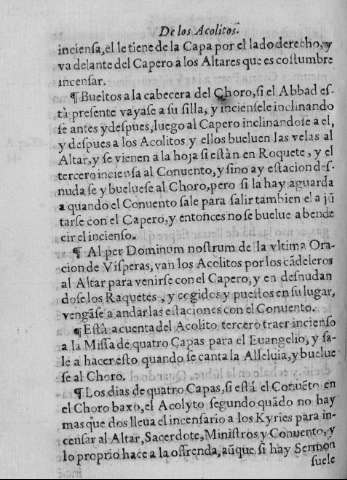 De los Acolitos.
inciensa, el le tiene de la Capa por el lado derecho, y
va delante del Capero a los Altares que es costumbre
incensar.
¶ Bueltos a la cabecera del Choro, si el Abbad es-
tà presente vayase a su silla, y inciensele inclinando
se antes y despues, luego al Capero inclinandose a el,
y despues a los Acolitos y ellos bueluen las velas al
Altar, y se vienen a la hoja si estàn en Roquete, y el
tercero inciensa al Conuento, y sino ay estacion des-
nuda se y bueluese al Choro, pero si la hay aguarda
a quando el Conuento sale para salir tambien el a jũ
tarse con el Capero, y entonces no se buelue a bende
cir el incienso.
¶ Al per Dominum nostrum de la vltima Ora-
cion de Visperas, van los Acolitos por los cãdeleros
al Altar para venirse con el Capero, y en desnudan
dose los Raquetes, y cogidos y puestos en su lugar,
vengãse a andar las estaciones con el Conuento.
¶ Està a cuenta del Acolito tercero traer incienso
a la Missa de quatro Capas para el Euangelio, y sa-
le a hacer esto quando se canta la Alleluia, y buelue
se al Choro.
¶ Los dias de quatro Capas, si està el Conuẽto en
el Choro baxo, el Acolyto segundo quãdo no hay
mas que dos lleua el incensario a los Kyries para in-
censar al Altar, Sacerdote, Ministros y Conuento, y
lo proprio hace a la ofrenda, aũque si hay Sermon
suele